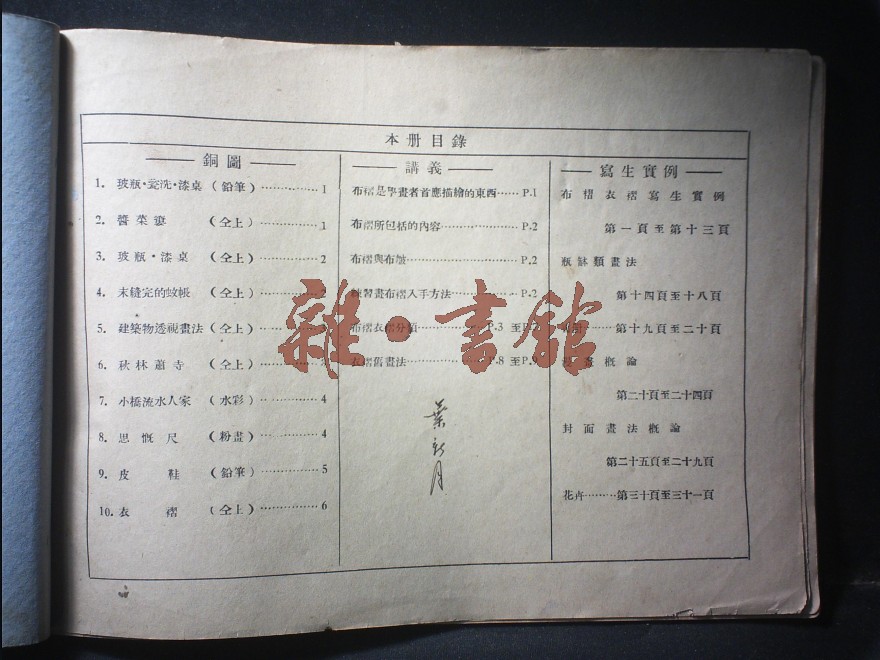 本册目錄
銅圖
1. 玻瓶·瓷洗·漆桌（鉛筆）…………… 1
2. 醬菜簍（仝上）…………… 1
3. 玻瓶·漆桌（仝上）…………… 2
4. 未縫完的蚊帳（仝上）……………
5. 建築物透視畫法（仝上）……………
6. 秋林蕭寺（仝上）……………
7. 小橋流水人家（水彩）…………… 4
8. 思慨尺（粉畫）…………… 4
9. 皮鞋（鉛筆）…………… 5
10. 衣褶（仝上）…………… 6
講義
布褶是學畫者首應描繪的東西…… P.1
布褶所包括的內容…………… P.2
布褶與布皴…………… P.2
練習畫布褶入手方法…………… P.2
布褶衣褶分類…………… P.3 至P.
衣褶舊畫法…………… P.8 至P.
葉新月
寫生實例
布褶衣褶寫生實例
第一頁至第十三頁
瓶缽類畫法
第十四頁至十八頁
第十九頁至二十頁
畫概論
第二十頁至二十四頁
封面畫法概論
第二十五頁至二十九頁
花卉………第三十頁至三十一頁
雜·書館